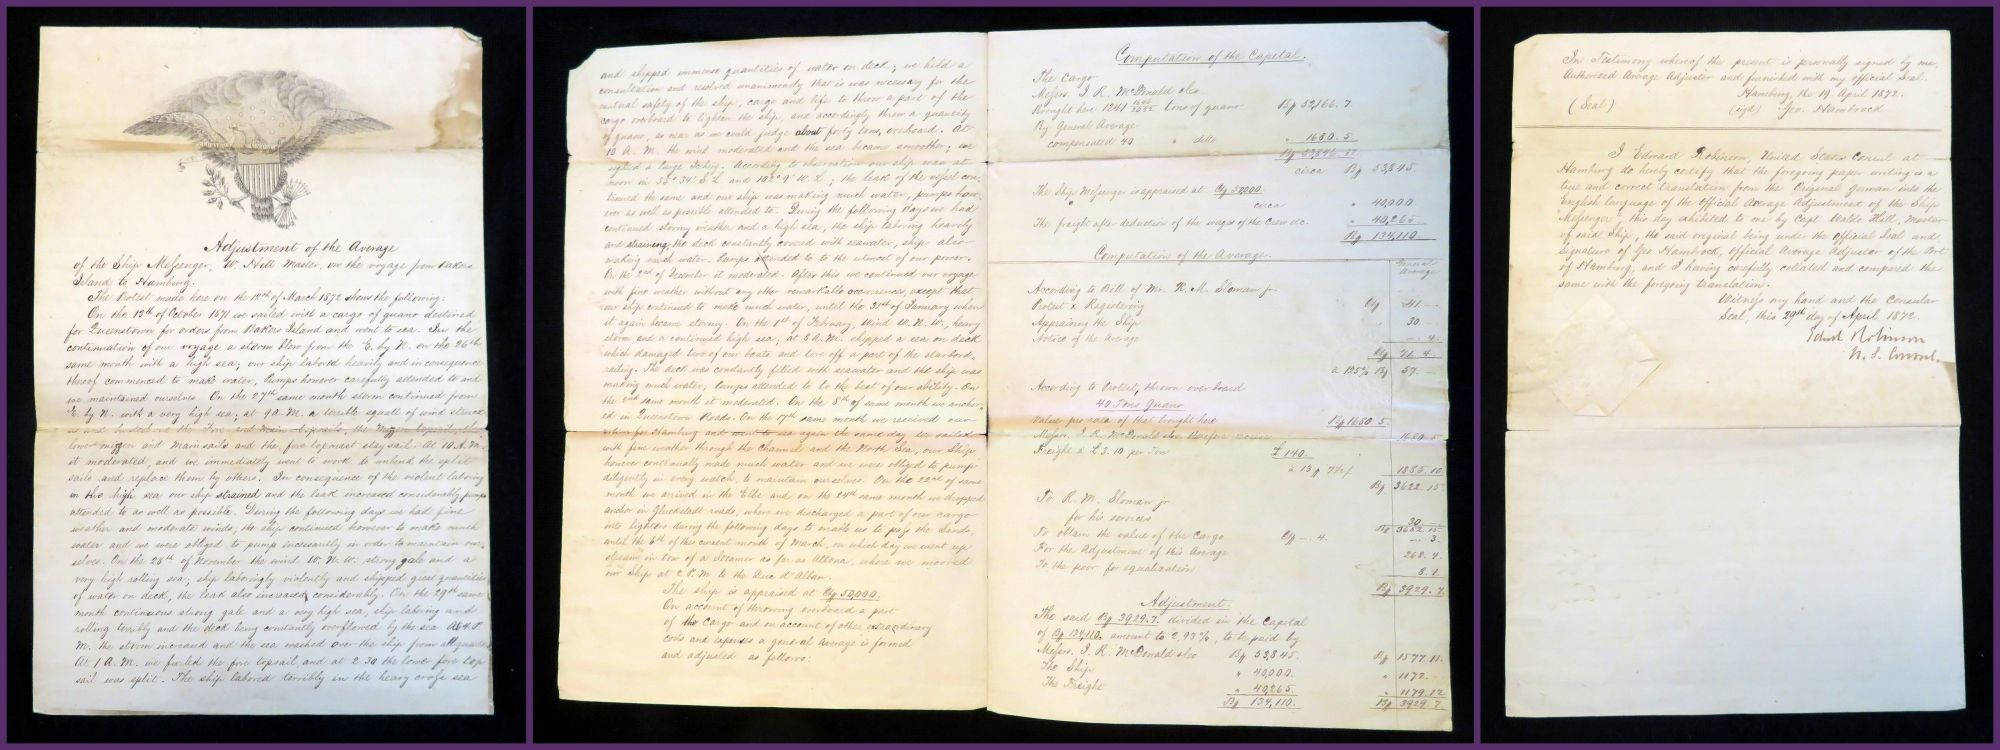 Adjustment of the Average
of the Ship Messenger, W. Hill Master, on the voyage from Bakers
Island to Hamburg.
The Protest made here on the 12th of March 1872 shows the following:
On the 13th of October 1871 we sailed with a cargo of guano destined
for Queenstown for orders from Bakers Island and went to sea. In the
continuation of our voyage a storm blew from the E. by N. on the 26th
same month with a high sea; our ship labored heavily and in consequence
thereof commenced to make water, Pumps however carefully attended to and
we maintained ourselves. On the 27th same month storm continued from
E. by N. with a very high sea; at 9 A.M. a terrible squall of wind struck
us and the Fore and Main topsails, the Mizzen topsail, the
lower mizzen and mainsails and the fore topmast stay sail. At 10 A.M.
it moderated, and we immediately went to work to unbend the split
sails and replace them by others. In consequence of the violent laboring
in this high sea our ship strained and the leak increased considerably, pumps
attended to as well as possible. During the following days we had fine
weather and moderate winds, the ship continued however to make much
water and we were obliged to pump incessantly in order to maintain our-
selves. On the 28th of November the wind W. N. W. strong gale and a
very high rolling sea; ship laboringly violently and shipped great quantities
of water on deck, the leak also increased considerably. On the 29th same
month continuous strong gale and a very high sea, ship laboring and
rolling terribly and the deck being constantly overflowed by the sea. At 4 P.
M. the storm increased and the sea washed over the ship from all quarters
At 1 A.M. we furled the fore topsail, and at 2.30 the lower fore top
sail was split. The ship labored terribly in the heavy cross sea
and shipped immense quantities of water on deck; we held a
consultation and resolved unanimously that is was necessary for the
mutual safety of the ship, cargo and life to throw a part of the
cargo overboard to lighten the ship, and accordingly threw a quantity
of guano, as near as we could judge about forty tons, overboard. At
10 A. M. the wind moderated and the sea became smoother; we
sighted a large Icberg. According to observation our ship was at
noon in 55° 34' S. L. and 102° 9' W. L.; the leak of the vessel con-
tinued the same and our ship was making much water, pumps how-
ever as well as possible attended to. During the following days we had
continued stormy weather and a high sea, the ship laboring heavily
and straining, the deck constantly covered with seawater, ship also
making much water. Pumps attended to to the utmost of our power.
On the 2nd of December it moderated. After this we continued our voyage
with fine weather without any other remarkable occurrences, except that
our ship continued to make much water, until the 31st of January when
it again became stormy. On the 1st of February, Wind W. N. W., heavy
storm and a continued high sea; at 8 A.M. shipped a sea on deck
which damaged two of our boats and tore off a part of the starbord-
railing. The deck was constantly filled with seawater and the ship was
making much water; Pumps attended to to the best of our ability. On
the 2nd same month it moderated. On the 8th of same month we anchor-
ed in Queenstown Roads. On the 17th same month we received our
orders for Hamburg and went to sea again the same day. We sailed
with fine weather through the Channel and the North Sea, our Ship
however continually made much water and we were obliged to pump
diligently in every watch, to maintain ourselves. On the 22nd of same
month we arrived in the Elbe and on the 24th same month we dropped
anchor in Gluckstadt roads, where we discharged a part of our cargo
into lighters during the following days to enable us to pass the Sands,
until the 6th of this current month of March, on which day we went up
stream in tow of a Steamer as far as Altona, where we moored
our Ship at 2 P.M. to the Duc d'Alban.
The ship is appraised at 50,000.
On account of throwing overboard a part
of the cargo and on account of other extraordinary
costs and expenses a general average is formed
and adjusted as follows:
Computation of the Capital.
The Cargo
Messrs. J. R. McDonald &Co
Brought here 1241 tons of guano 52,166. 7.
By General Average
compensated 40 " ditto " 1680. 5.
53,846. 12
circa 53,845.
The Ship Messenger is appraised at 50000.
circa " 40,000.
The freight after deduction of the wages of the Crew etc. " 40,265.
134,110.
Computation of the Average.
General
Average
According to Bill of Mr. R. M. Sloman jr.
Protest & Registering 41. –
Appraising the Ship 30. –
Notice of the Average –. 4.
71. 4.
a 125% 57. –
According to Protest, thrown overboard
40 Tons Guano
Value pro rata of that brought here 1680. 5.
Messrs. J. R. McDonald &Co therefore receive 1680. 5
Freight a £3. 10 per Ton £ 140.
1885. 10
3622. 15.
To R. M. Sloman jr
for his services 30.
3652. 15.
To obtain the value of the Cargo –. 4. –. 3.
For the Adjustment of this Average 268. 4.
To the poor for equalization 8. 1.
3929. 7.
Adjustment.
The said 3929. 7. divided in the Capital
of 134,110. amount to 2,93%, to be paid by
Messrs. J. R. McDonald &Co 53,845. 1577. 11.
The Ship " 40,000. " 1172. –
The Freight " 40,265. " 1179. 12
134,110. 3929. 7
In Testimony whereof the present is personally signed by me,
Authorized Average Adjuster and furnished with my official Seal.
Hamburg, the 19 April 1872.
(Seal) (sgd) Geo. Hambrock
I Edward Robinson, United States Consul at
Hamburg do hereby certify that the foregoing paper writing is a
true and correct translation from the Original German into the
English language of the Official Average Adjustment of the Ship
"Messenger" this day exhibited to me by Capt Waldo Hill, Master
of said Ship, the said original being under the Official Seal and
signature of Geo Hambrock, Official Average Adjustor of the Port
of Hamburg, and I having carefully collated and compared the
same with the foregoing translation.
Witness my hand and the Consular
Seal, this 29th day of April 1872.
Edwd Robinson
U. S. Consul.